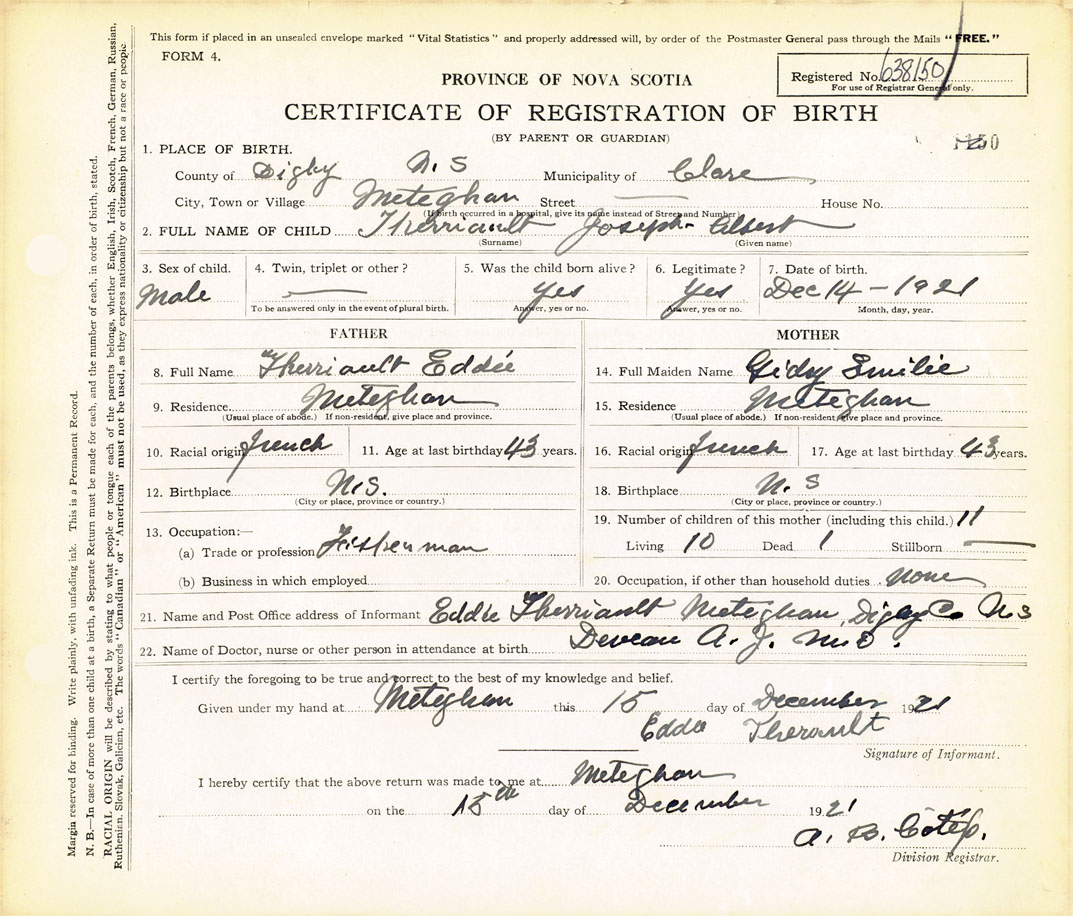 This form if placed in an unsealed envelope marked "Vital Statistics" and properly addressed will, by order of the Postmaster General pass through the Mails "FREE."
FORM 4.
Registered No. 638150
For use of Registrar General only.
PROVINCE OF NOVA SCOTIA
CERTIFICATE OF REGISTRATION OF BIRTH
(BY PARENT OR GUARDIAN)
1. PLACE OF BIRTH.
County of Digby N.S Municipality of Clare
City, Town or Village Meteghan Street House No.
(If birth occurred in a hospital, give its name instead of Street and Number)
2. FULL NAME OF CHILD Therriault Joseph Albert
(Surname) (Given name)
3. Sex of child. 4. Twin, triplet or other? 5. Was the child born alive? 6. Legitimate? 7. Date of birth.
Male Yes Yes Dec 14 - 1921
To be answered only in the event of plural birth. Answer, yes or no. Answer, yes or no. Month, day, year.
FATHER MOTHER
8. Full Name Therriault Eddie 14. Full Maiden Name Gidry Emilie
9. Residence Meteghan 15. Residence Meteghan
(Usual place of abode.) If non-resident, give place and province. (Usual place of abode.) If non-resident, give place and province.
10. Racial origin french 11. Age at last birthday 43 years. 16. Racial origin french 17. Age at last birthday 43 years.
12. Birthplace N.S. 18. Birthplace N.S
(City or place, province or country.) (City or place, province or country.)
13. Occupation:— 19. Number of children of this mother (including this child.) 11
(a) Trade or profession Fisherman Living 10 Dead 1 Stillborn
(b) Business in which employed 20. Occupation, if other than household duties. None
21. Name and Post Office address of Informant Eddie Therriault Meteghan, Digby Co N S
22. Name of Doctor, nurse or other person in attendance at birth Deveau A. J. M.D.
I certify the foregoing to be true and correct to the best of my knowledge and belief.
Given under my hand at Meteghan this 15 day of December 1921
Eddie Therault
Signature of Informant.
I hereby certify that the above return was made to me at Meteghan
on the 15th day of December 1921
A. B.
Division Registrar.
Margin reserved for binding. Write plainly, with unfading ink. This is a Permanent Record.
N. B.—In case of more than one child at a birth, a Separate Return must be made for each, and the number of each, in order of birth, stated.
RACIAL ORIGIN will be described by stating to what people or tongue each of the parents belongs, whether English, Irish, Scotch, French, German, Russian,
Ruthenian, Slovak, Galician, etc. The words "Canadian" or "American" must not be used, as they express nationality or citizenship but not a race or people.